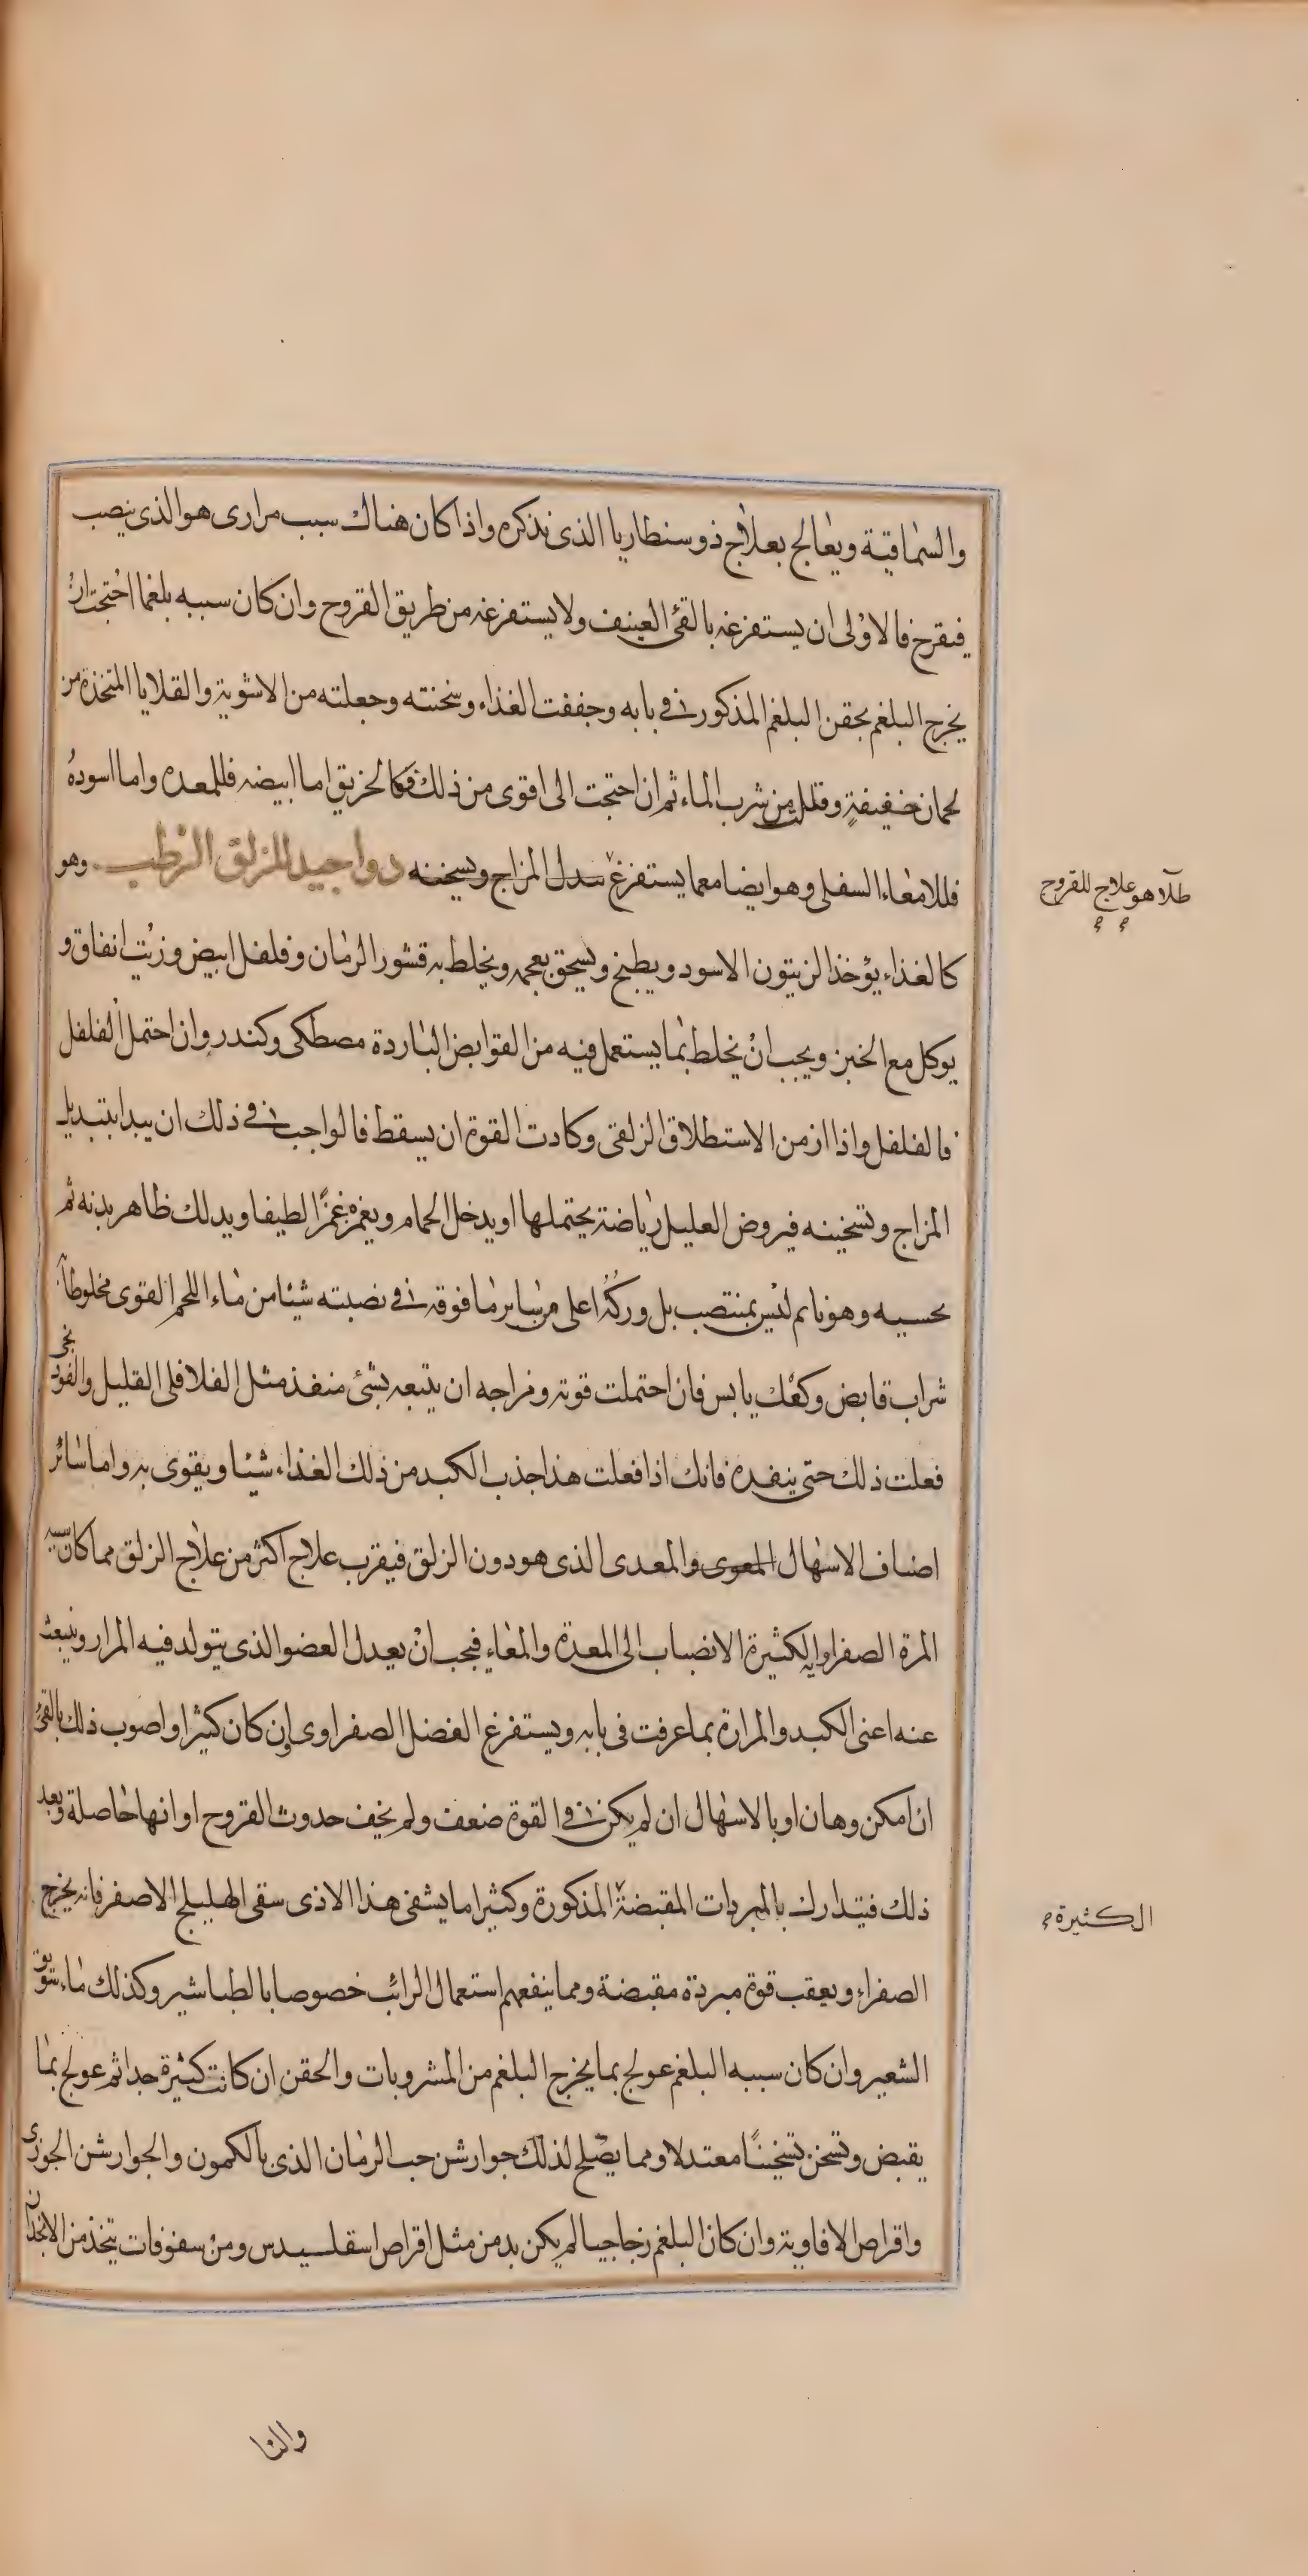 والسماقية ويعالج بعلاج ذوسنطاريا الذى نذكره واذا كان هناك سبب مرارى هو الذى ينصب
فيقرح فالاولى ان يستفرغه بالقئ العنيف ولا يستفرغه من طريق القروح وان كان سببه بلغما احتجت ان
يخرج البلغم بحقن البلغم المذكور فى بابه وجففت الغذاء وسخنته وجعلته من الاشوية والقلايا المتخذة من
لحمان خفيفة وقللت من شرب الماء ثم ان احتجت الى اقوى من ذلك فكالخربق اما ابيضه فللمعده واما اسوده
فللامعاء السفلى وهو ايضا معما يستفرغ يبدل المزاج ويسخنه دوا جيد للزلق الرطب وهو
طلآ هو علاج للقروح
كالغذاء يؤخذ الزيتون الاسود ويطبخ ويسحق بعجمه ويخلط به قشور الرمان وفلفل ابيض وزيت انفاق و
يوكل مع الخبز ويجب ان يخلط بما يستعمل فيه من القوابض الباردة مصطكى وكندر وان احتمل الفلفل
فالفلفل واذا ازمن الاستطلاق الزلقى وكادت القوة ان يسقط فالواجب فى ذلك ان يبدا بتبديل
المزاج وتسخينه فيروض العليل رياضة يحتملها او يدخل الحمام ويغمزه غمزًا لطيفا ويدلك ظاهر بدنه ثم
يحسيه وهو نايم ليس بمنتصب بل وركه اعلى من ساير ما فوقه فى نصبته شيئا من ماء اللحم القوى مخلوطا
شراب قابض وكعك يابس فان احتملت قوته ومزاجه ان يتبعه بشئ منفذ مثل الفلافلى القليل والفودنجى
فعلت ذلك حتى ينفده فانك اذا فعلت هذا جذب الكبد من ذلك الغذاء شيئا ويقوى به واما سائر
اصناف الاسهال المعوى والمعدى الذى هو دون الزلق فيقرب علاج اكثر من علاج الزلق مما كان سببه
المرة الصفراوية الكثيرة الانصباب الى المعدة والمعاء فيجب ان يعدل العضو الذى يتولد فيه المرار وينبعث
عنه اعنى الكبد والمرارة بما عرفت فى بابه ويستفرغ الفضل الصفراوى ان كان كثيرا واصوب ذلك بالقئ
ان امكن وهان او بالاسهال ان لم يكن فى القوة ضعف ولم يخف حدوث القروح او انها حاصلة وبعد
ذلك فيتدارك بالمبردات المقبضة المذكورة وكثيرا ما يشفى هذا الاذى سقى الهليلج الاصفر فانه يخرج
الكثيرة
الصفراء ويعقب قوة مبردة مقبضة ومما ينفعهم استعمال الرائب خصوصا بالطباشير وكذلك ماء سويق
الشعير وان كان سببه البلغم عولج بما يخرج البلغم من المشروبات والحقن ان كانت كثيرة جدا ثم عولج بما
يقبض وتسخن تسخينًا معتدلا ومما يصلح لذلك جوارشن حب الرمان الذى بالكمون والجوارشن الجوزى
واقراص الافاوية وان كان البلغم زجاجيا لم يكن بد من مثل اقراص اسقلسيدس ومن سفوفات يتخذ من الانجدان
والنا